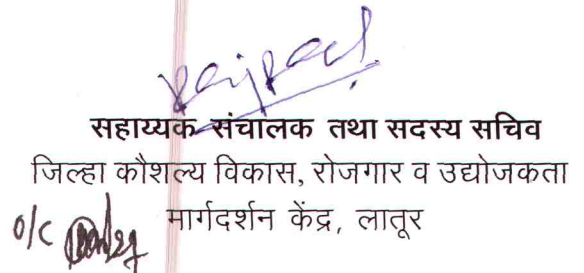 सहाय्यक संचालक तथा सदस्य सचिव
जिल्हा कौशल्य विकास, रोजगार व उद्योजकता
मार्गदर्शन केंद्र, लातूर
o/c